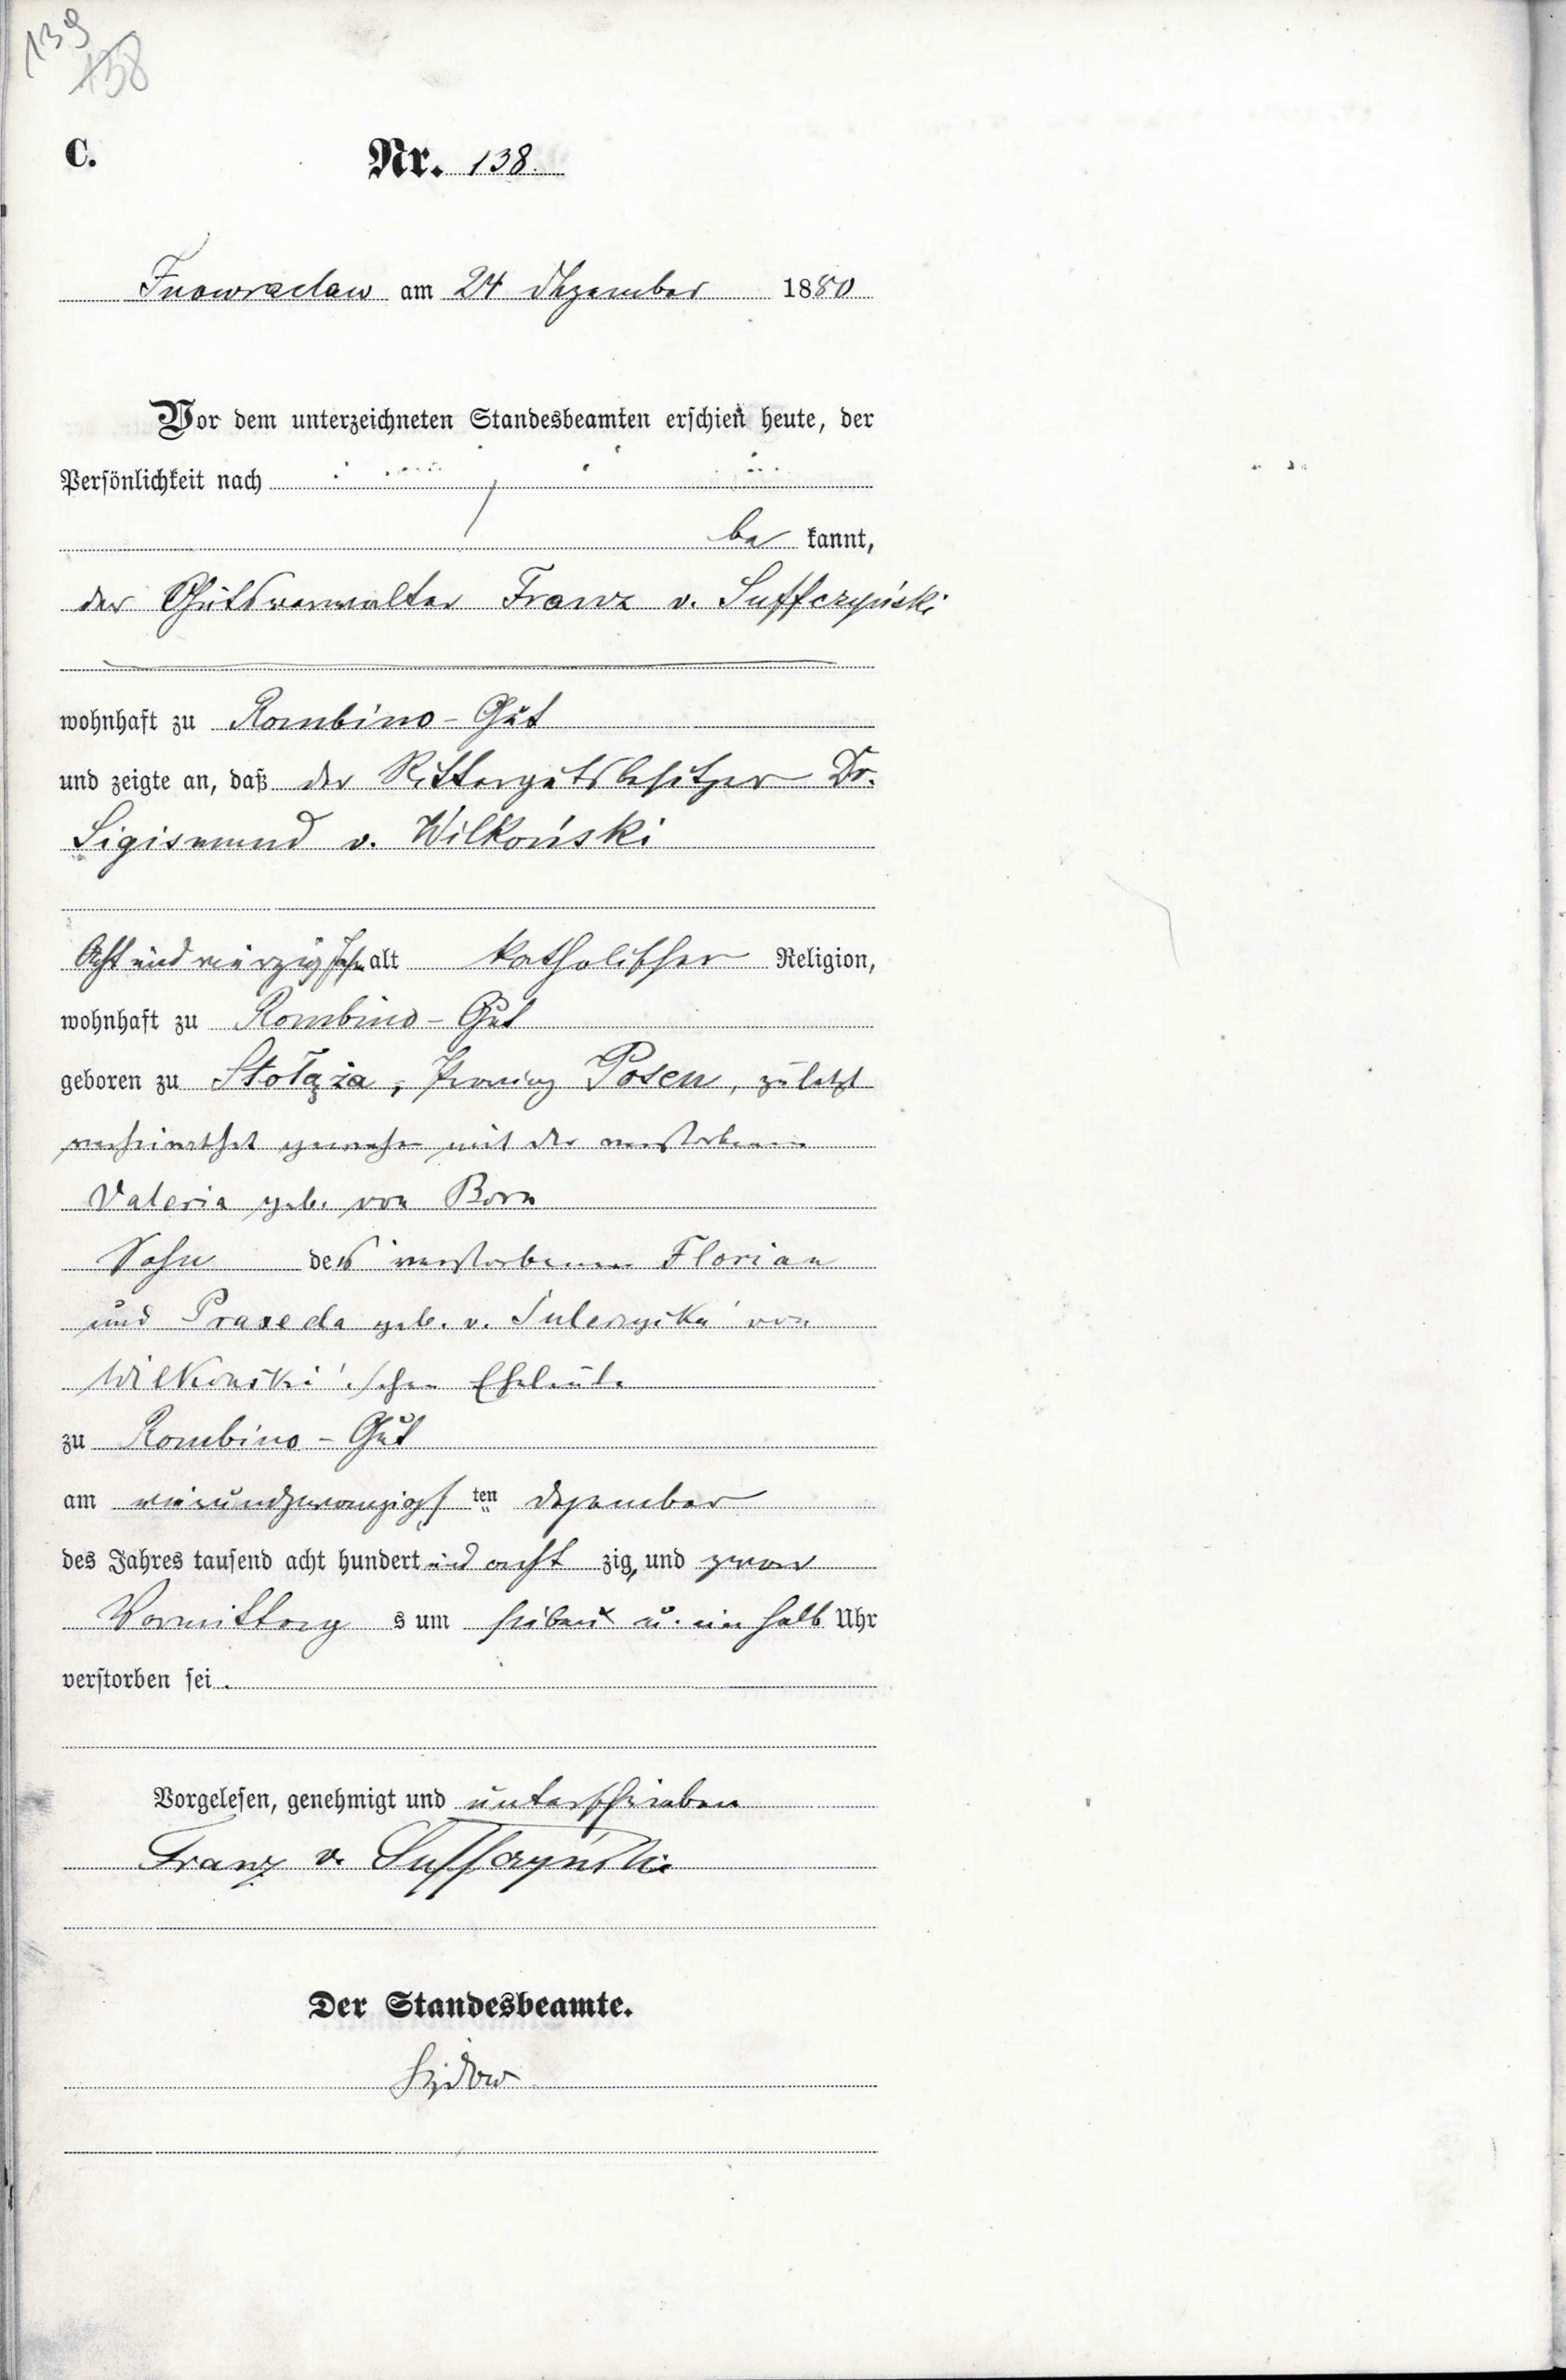 139
158
C. Nr. 138.
Inowraclaw am 24 Dezember 1880
Vor dem unterzeichneten Standesbeamten erschien heute, der
Persönlichkeit nach
be kannt,
der Gutsverwalter Franz v. Suffczyński
wohnhaft zu Rombino-Gut
und zeigte an, daß der Rittergutsbesitzer Dr.
Sigismund v. Wilkoński
Acht und vierzig Jahr alt katholischer Religion,
wohnhaft zu Rombino-Gut
geboren zu Stołąża, Provinz Posen, zuletzt
verheirathet gewesen mit der verstorbenen
Valeria geb. von Born
Sohn des verstorbenen Florian
und Praxeda geb. v. Sulerzycka von
Wilkonski'schen Eheleute
zu Rombino-Gut
am vierundzwanzigsten Dezember
des Jahres tausend acht hundert und acht zig, und zwar
Vormittag s um sieben u. ein halb Uhr
verstorben sei.
Vorgelesen, genehmigt und unterschrieben
Franz v. Suffczyński
Der Standesbeamte.
Sydow